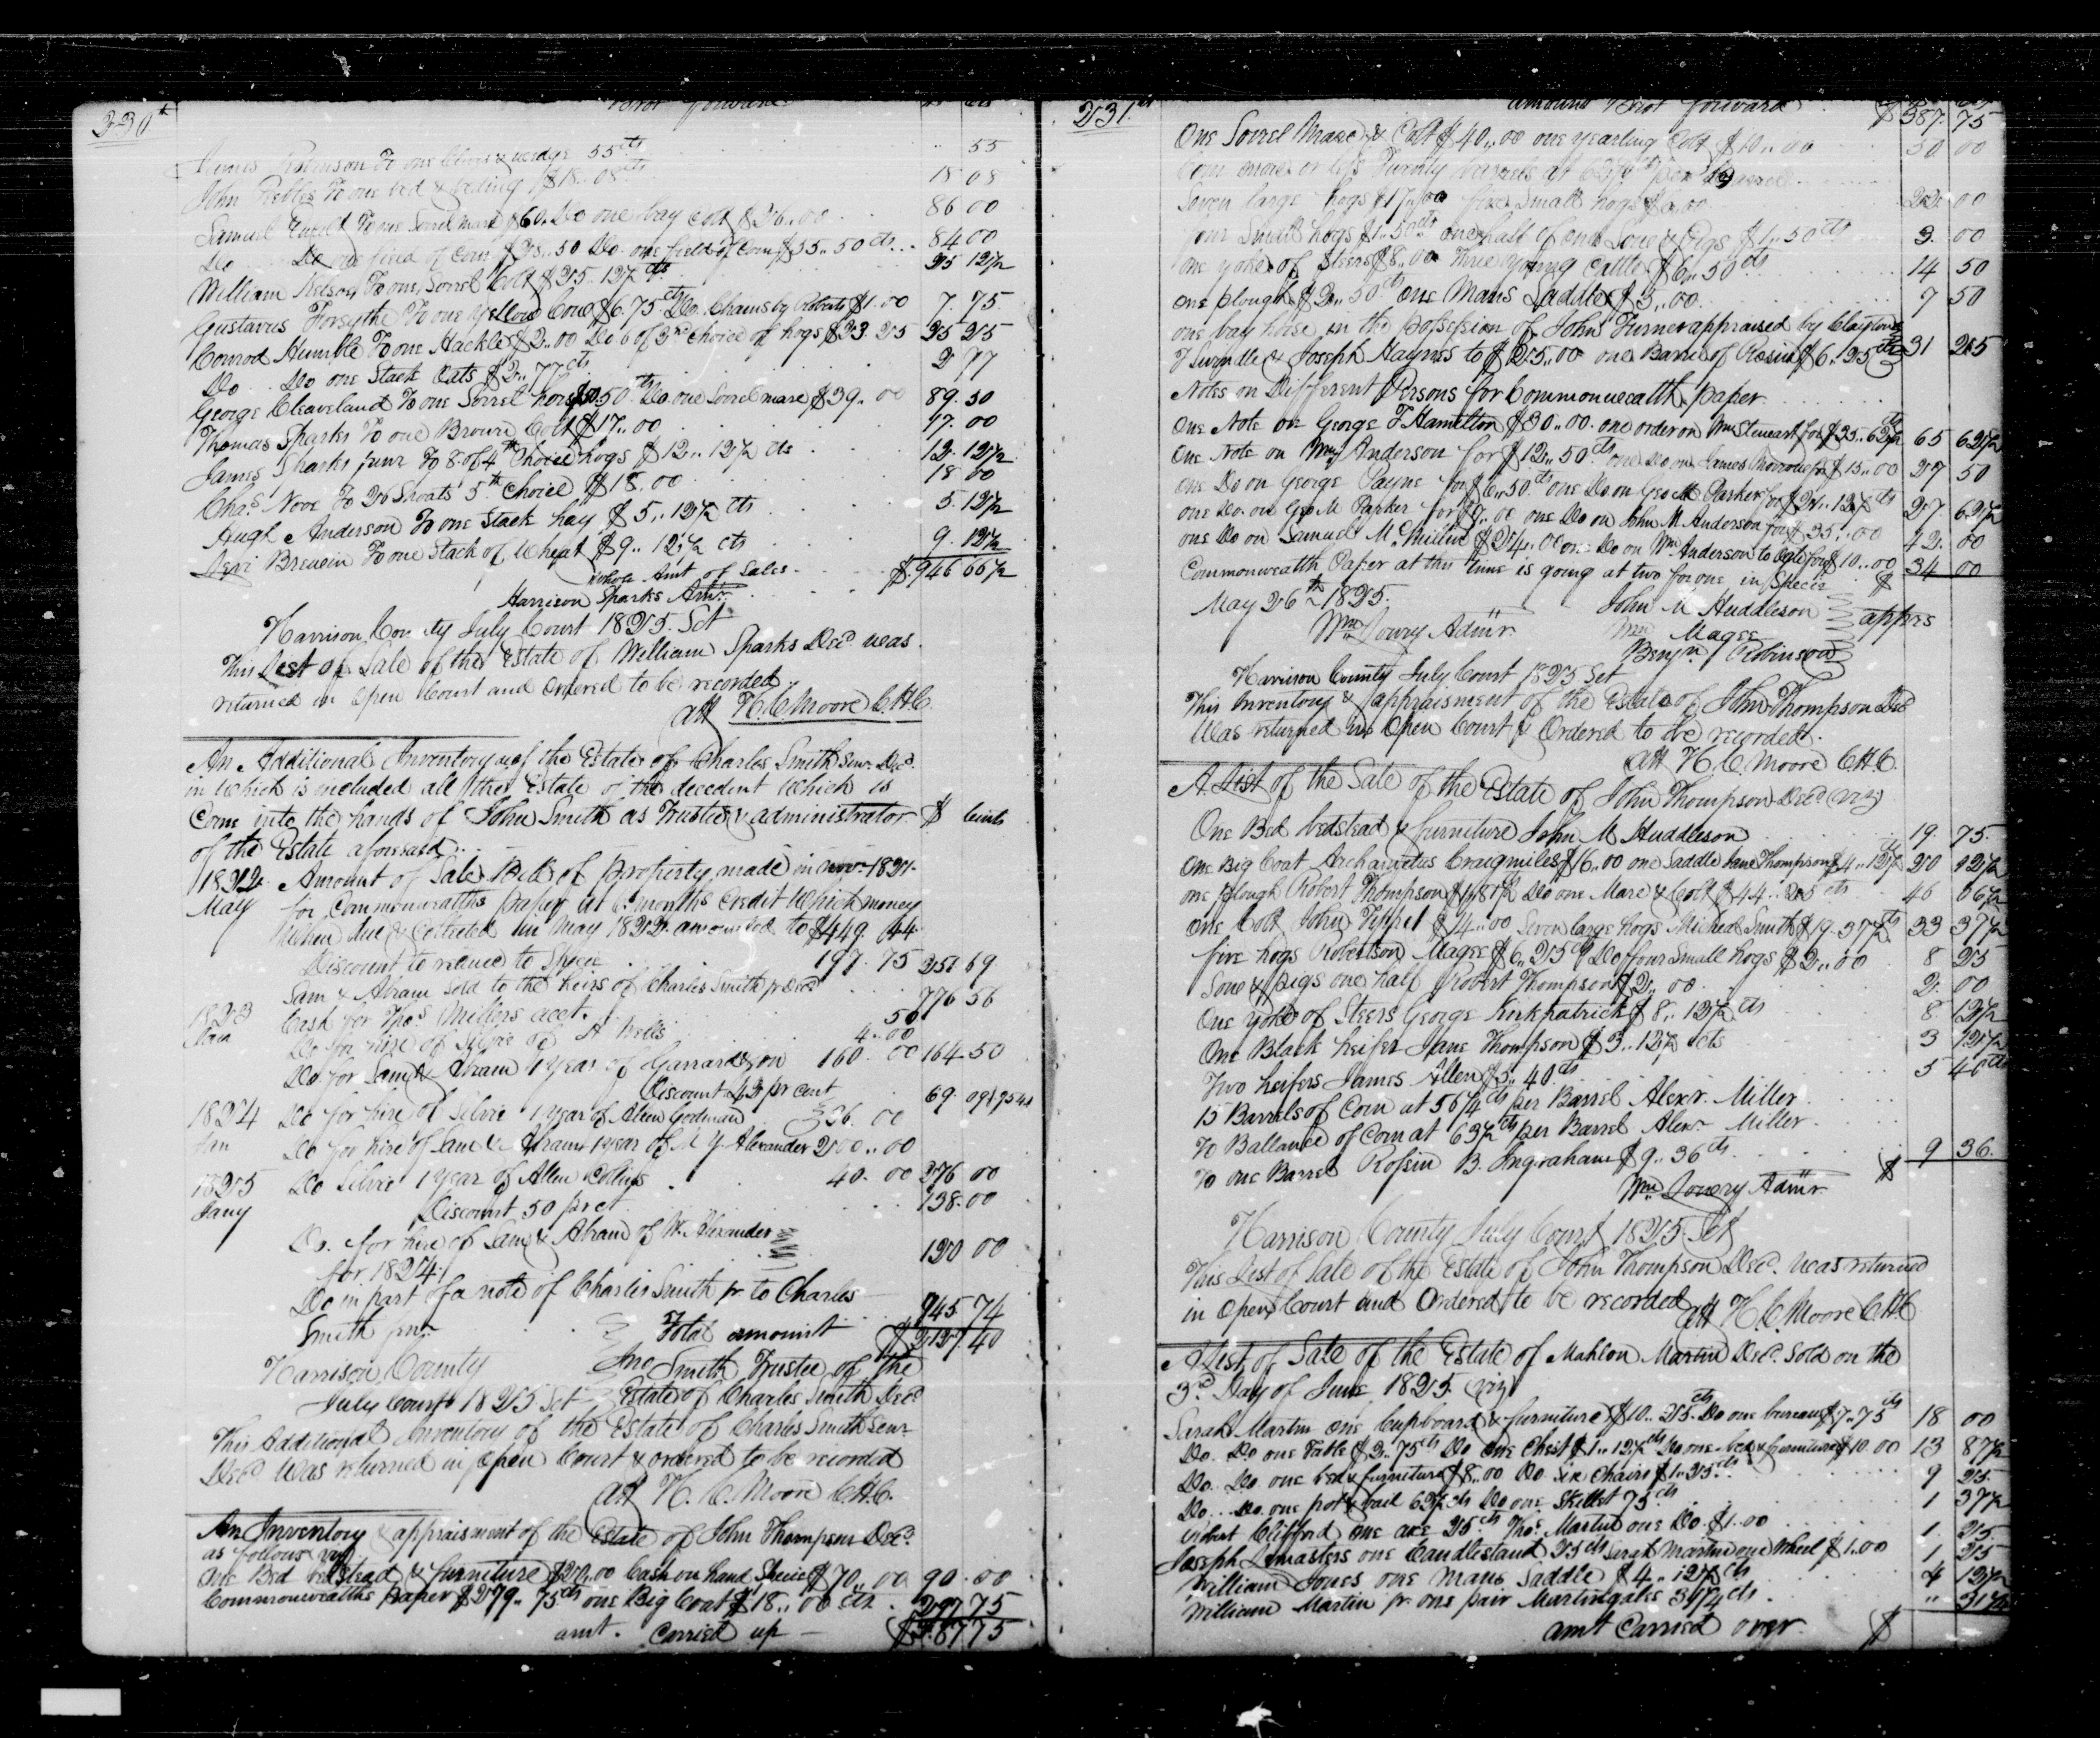 230th
Brot forward
James Robinson To one Clevis & wedge 55cts 55
John Peebles To one bed & beding $18..08cts 18 08
Samuel Ewalt To one Sorrel mare $60. Do one bay Colt $26..00 86 00
Do Do one field of Corn $28..50 Do. one field of Corn $55..50 cts 84 00
William Nelson To one Sorrel Colt $25..12½ cts 25 12½
Gustavus Forsythe To one Yellow Cow $6.75cts Do. Chains by Roberts $1.00 7.75
Conrod Humble To one Hackle $2..00 Do 6 of 3rd Choice of hogs $23 25 25 25
Do Do one Stack Oats $2..77cts 2 77
George Cleaveland To one Sorrel horse $50.50cts Do. one Sorrel mare $39..00 89.50
Thomas Sparks To one Brown Colt $17..00 17.00
James Sparks junr To 8. of 4th Choice hogs $12..12½ cts 12.12½
Chas Nove To 26 Shoats 5th Choice $18.00 18 00
Hugh Anderson To one Stack hay $5..12½ cts 5.12½
Levi Brewin To one Stack of Wheat $9..12½ cts 9.12½
Whole Amt of Sales $946 66½
Harrison Sparks Admr.
Harrison County July Court 1825. Sct
This List of Sale of the Estate of William Sparks Decd was
returned in Open Court and Ordered to be recorded
att H. C. Moore C.H.C.
An Additional Inventory of the Estate of Charles Smith Senr. Decd.
in Which is included all the Estate of the decedent Which is
Come into the hands of John Smith as Trustee & administrator $ Cents
of the Estate aforesaid
1822 Amount of Sale Bill of property made in Novr 1821
May for Commonwealths paper at 6 months Credit Which money
When due & Collected in May 1822 amounted to $449. 44
Discount to reduce to Specie 197.75 251 69
Sam & Abram Sold to the heirs of Charles Smith jr Decd 776 56
1823 Cash for Thos Millers acct. 50
Jan Do for hire of Silvie of A Wells 4.00
Do. for Sam & Abram 1 year of Garrard & son 160.00 164.50
Discount 42 pr cent 69.09 | 95 41
1824 Do for hire of Silvie 1 year of Allen Godman 36.00
Jan Do for hire of Sam & Abram 1 year of M. J. Alexander 200..00
1825 Do Silvie 1 year of Allen Collins 40.00 276 00
Jany Discount 50 pr ct. 138.00
Do. for hire of Sam & Abram of W. Alexander
for 1824 120 00
Do in part of a note of Charles Smith jr to Charles
Smith senr. 945 74
Total amount $2127.40
Harrison County Jno Smith Trustee of the
July Court 1825 Sct Estate of Charles Smith Decd
This Additional Inventory of the Estate of Charles Smith Senr
Decd Was returned in Open Court & ordered to be recorded
att H. C. Moore C.H.C.
An Inventory & appraisment of the Estate of John Thompson Decd.
as follows viz
One Bed bedstead & furniture $20..00 Cash on hand Specie $70..00 90.00
Commonwealths paper $279..75cts one Big Coat $18..00 cts 297 75
amt. Carried up $387 75
231st
amount Brot forward $387.75
One Sorrel Mare & Colt $40..00 one yearling Colt $10..00 50 00
Corn more or less Twenty barrels at 62½ cts per Barrel
Seven large hogs $17..00 five Small hogs $5.00 22 00
four Small hogs $1..50cts one half of one Sow & Pigs $1..50cts 3.00
One yoke of Steers $8..00 Three young Cattle $6..50cts 14 50
one plough $2..50cts one Mans Saddle $5..00 7 50
one bay horse in the possession of John Turner appraised by Clayton
T Swindle & Joseph Haynes to $25..00 one Barrel of Rosin $6..25cts 31 25
Notes on Different Persons for Commonwealth paper
One Note on George T Hamilton $30..00. one order on Wm Stewart for $35..62½ cts 65 62½
One Note on Wm Anderson for $12..50cts one Do on James Murrow for $15..00 27 50
One Do on George Payne for $6..50cts one Do. on Geo M Parker for $21..12½ cts 27 62½
one Do. on Geo M Parker for $7..00 one Do on John M Anderson for $35..00 42.00
one Do on Samuel McMillin $24.00 one Do on Wm Anderson to Ogle for $10..00 34 00
Commonwealth Paper at this time is going at two for one in Specie $
May 26th 1825. John M Huddleson
Wm Lowry Admr. Wm Magee appres
Benjn Robinson
Harrison County July Court 1825 Sct
This Inventory & appraisment of the Estate of John Thompson Decd
Was returned in Open Court & Ordered to be recorded.
att H. C. Moore C.H.C.
A List of the Sale of the Estate of John Thompson Decd viz
One Bed bedstead & furniture John M Huddleson 19.75.
One Big Coat Archamutus Craigmiles $16.00 one Saddle Jane Thompson $4..12½ cts 20 12½
one plough Robert Thompson $1.81½ Do one Mare & Colt $44..25 cts 46 06½
One Colt John Tippet $14..00 Seven large hogs Micheal Smith $19.37½ cts 33 37½
five hogs Robertson Magee $6..25cts Do four Small hogs $2..00 8 25
Sow & pigs one half Robert Thompson $2..00 2.00
One yoke of Steers George Kirkpatrick $8..12½ cts 8 12½
One Black heifer Jane Thompson $3..12½ cts 3 12½
Two heifers James Allen $5..40cts 5 40cts
15 Barrels of Corn at 56¼cts per Barrel Alexr. Miller
To Ballance of Corn at 63½cts per Barrel Alexr Miller
To one Barrel Rossin B. Ingraham $9..36cts 9 36.
Wm Lowry Admr. $
Harrison County July Court 1825 Sct
This List of Sale of the Estate of John Thompson Decd. Was returned
in Open Court and Ordered to be recorded
att H. C. Moore C.H.C
A List of Sale of the Estate of Mahlon Martin Decd. Sold on the
3rd Day of June 1825 (viz)
Sarah Martin one Cupboard & furniture $10..25cts Do one bureau $7..75cts 18 00
Do. Do one Table $2..75cts Do One Chest $1..12½cts Do one bed & furniture $10.00 13 87½
Do. Do. one bed & furniture $8..00 Do. Six Chairs $1..25cts 9 25
Do.. Do. one pot & bail 62½cts Do one Skillet 75cts 1 37½
Clifford One axe 25cts Thos. Martin one Do. $1.00 1.25
Joseph Lemasters one Candlestand 25cts Sarah Martin one Wheel $1..00 1 25
William Jones one Mans Saddle $4..12½cts 4 12½
William Martin jr. one pair Martingales 31¼cts " 31¼
amt Carried over $